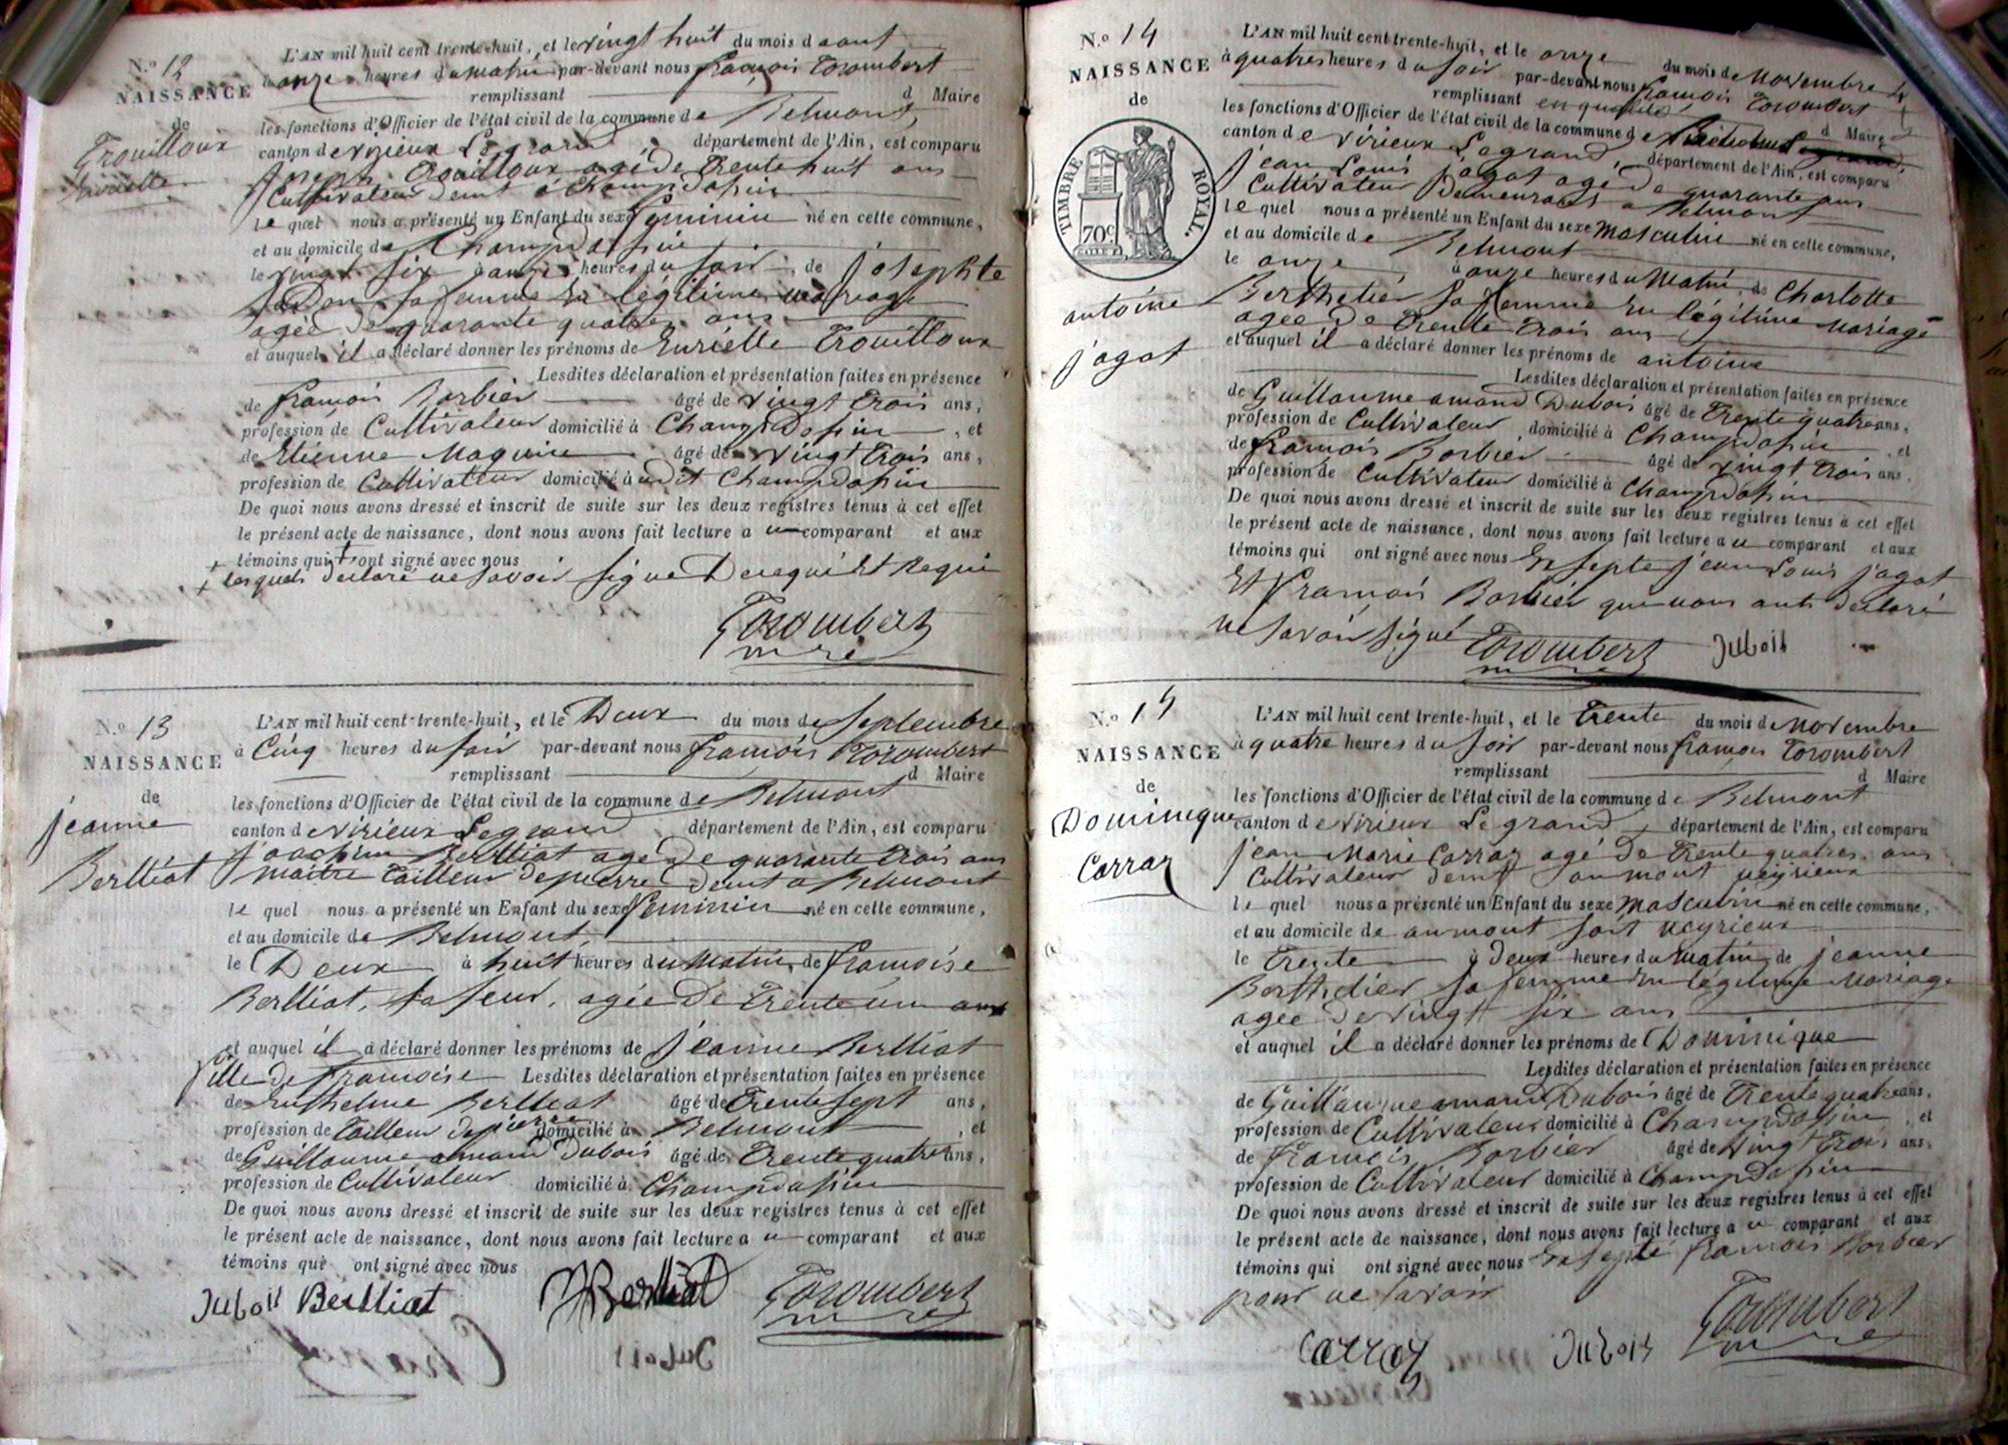 N.o 12
NAISSANCE
de
Trouilloux
Euriette
L'AN mil huit cent trente-huit, et le vingt huit du mois d aout
à onze heures du matin par-devant nous françois Torombert
remplissant d Maire
les fonctions d'Officier de l'état civil de la commune de Belmont,
canton de virieux Legrand département de l'Ain, est comparu
Joseph Trouilloux agé de Trente huit ans
Cultivateur demt à Champdossin
le quel nous a présenté un Enfant du sexe feminin né en cette commune,
et au domicile de Champdossin
le vingt six à onze heures du soir, de josephte
sa femme en légitime mariage
agée de quarante quatre ans
et auquel il a déclaré donner les prénoms de Euriette Trouilloux
Lesdites déclaration et présentation faites en présence
de françois Borbier âgé de vingt trois ans,
profession de Cultivateur domicilié à Champdossin, et
de Etienne Maquin âgé de vingt trois ans,
profession de Cultivateur domicilié à udit Champdossin
De quoi nous avons dressé et inscrit de suite sur les deux registres tenus à cet effet
le présent acte de naissance, dont nous avons fait lecture a u comparant et aux
témoins qui + ont signé avec nous
+ lesquels declaré ne savoir signe De requi Et Requi
Torombert
mre
N.o 13
NAISSANCE
de
jeanne
Berlliat
L'AN mil huit cent trente-huit, et le Deux du mois de septembre
à Cinq heures du soir par-devant nous françois Torombert
remplissant d Maire
les fonctions d'Officier de l'état civil de la commune de Belmont
canton de virieux Legrand département de l'Ain, est comparu
joachim Berlliat agé de quarante trois ans
maitre Tailleur de pierre demt a Belmont
le quel nous a présenté un Enfant du sexe feminin né en cette commune,
et au domicile de Belmont,
le Deux à huit heures du matin, de françoise
Berlliat, sa seur, agée de Trente un ans
et auquel il a déclaré donner les prénoms de jeanne Berlliat
fille de françoise Lesdites déclaration et présentation faites en présence
de Anthelme Berlliat âgé de Trente sept ans,
profession de Tailleur de pierre domicilié à Belmont, et
de Guillaume amand Dubois âgé de Trente quatre ans,
profession de Cultivateur domicilié à Champdossin
De quoi nous avons dressé et inscrit de suite sur les deux registres tenus à cet effet
le présent acte de naissance, dont nous avons fait lecture a u comparant et aux
témoins qui ont signé avec nous
Dubois Berlliat Berlliat Torombert
mre
N.o 14
NAISSANCE
de
TIMBRE ROYAL.
70c
antoine
jagot
L'AN mil huit cent trente-huit, et le onze du mois de Novembre
à quatre heures du soir par-devant nous françois Torombert
remplissant en qualité d Maire
les fonctions d'Officier de l'état civil de la commune de
canton de virieux Legrand, département de l'Ain, est comparu
jean Louis jagot agé de quarante ans
Cultivateur Demeurant a Belmont
le quel nous a présenté un Enfant du sexe masculin né en cette commune,
et au domicile de Belmont
le onze, à onze heures du matin, de Charlotte
Berthelier sa femme En légitime Mariage
agée de Trente Trois ans
et auquel il a déclaré donner les prénoms de antoine
Lesdites déclaration et présentation faites en présence
de Guillaume amand Dubois âgé de Trente quatre ans,
profession de Cultivateur, domicilié à Champdossin, et
de françois Borbier âgé de vingt trois ans,
profession de Cultivateur domicilié à Champdossin
De quoi nous avons dressé et inscrit de suite sur les deux registres tenus à cet effet
le présent acte de naissance, dont nous avons fait lecture a u comparant et aux
témoins qui ont signé avec nous Exsepte jean Louis jagot
Et françois Borbier que nous ont declaré
ne savoir signé Torombert Dubois
N.o 15
NAISSANCE
de
Dominique
Carraz
L'AN mil huit cent trente-huit, et le Trente du mois de Novembre
à quatre heures du soir par-devant nous françois Torombert
remplissant d Maire
les fonctions d'Officier de l'état civil de la commune de Belmont
canton de virieux Legrand, département de l'Ain, est comparu
jean Marie Carraz agé de Trente quatre ans
Cultivateur demt aumont veyrieux
le quel nous a présenté un Enfant du sexe masculin né en cette commune,
et au domicile de aumont sort veyrieux
le Trente à Deux heures du matin, de jeanne
Berthelier sa femme En légitime Mariage
agée de vingt six ans
et auquel il a déclaré donner les prénoms de Dominique
Lesdites déclaration et présentation faites en présence
de Guillaume amand Dubois âgé de Trente quatre ans,
profession de Cultivateur domicilié à Champdossin, et
de françois Borbier âgé de vingt trois ans,
profession de Cultivateur domicilié à Champdossin
De quoi nous avons dressé et inscrit de suite sur les deux registres tenus à cet effet
le présent acte de naissance, dont nous avons fait lecture a u comparant et aux
témoins qui ont signé avec nous Exsepté françois Borbier
pour ne savoir
Carraz Dubois Torombert
mre